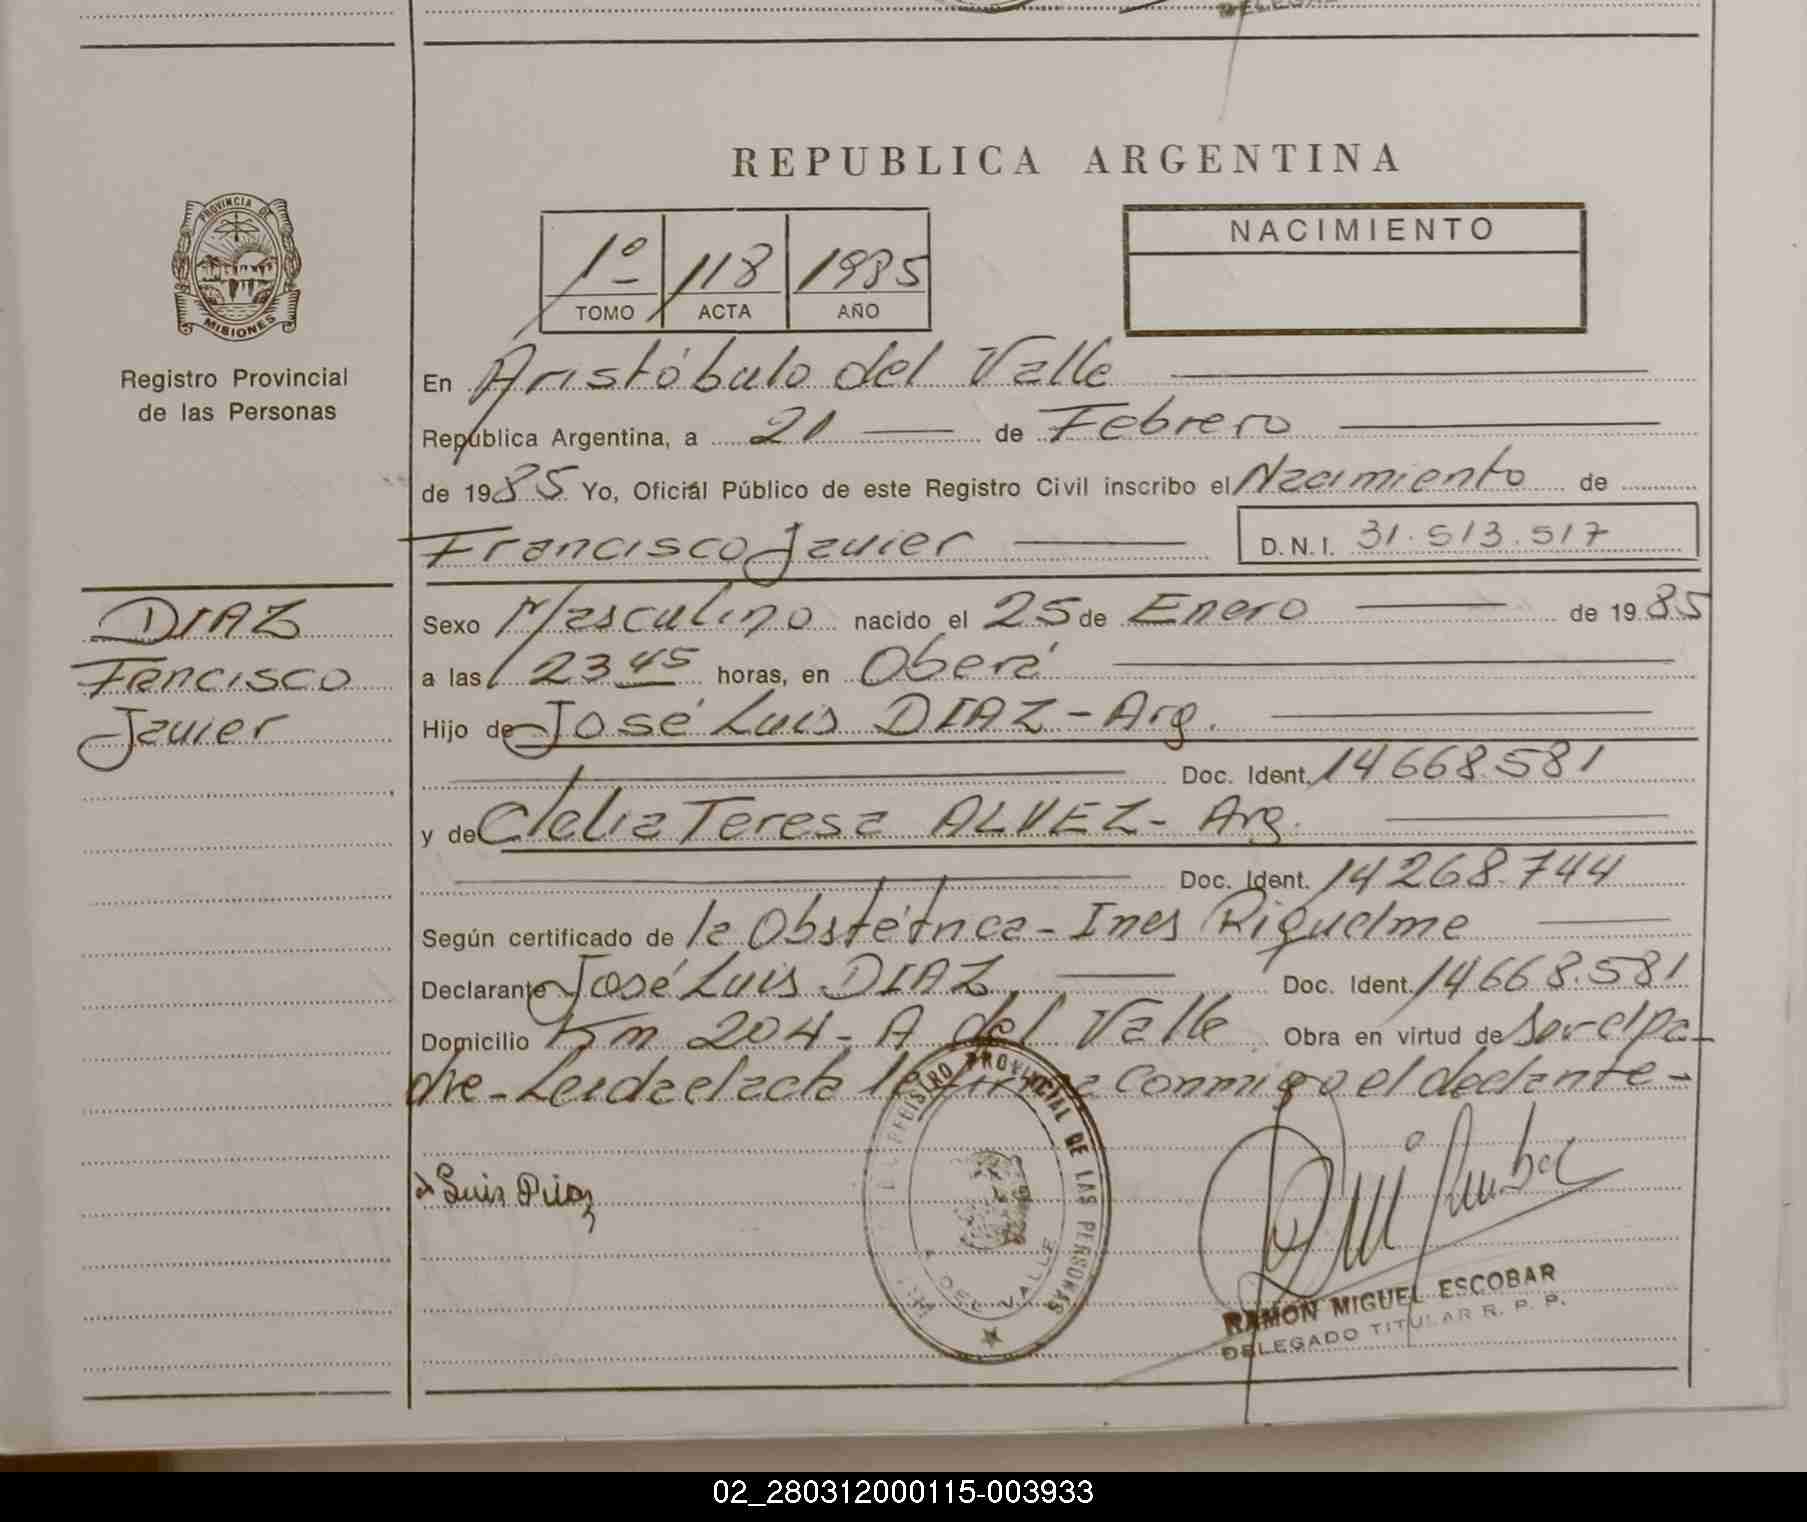 REPUBLICA ARGENTINA
PROVINCIA DE
MISIONES
Registro Provincial
de las Personas
1º 118 1985
TOMO ACTA AÑO
NACIMIENTO
En Aristóbulo del Valle
República Argentina, a 21 de Febrero
de 1985 Yo, Oficial Público de este Registro Civil inscribo el Nacimiento de
Francisco Javier D.N.I. 31.513.517
DIAZ
Francisco
Javier
Sexo Masculino nacido el 25 de Enero de 1985
a las 23 45 horas, en Oberá
Hijo de José Luis DIAZ - Arg.
Doc. Ident. 14668.581
y de Clelia Teresa ALVEZ - Arg.
Doc. Ident. 14268.744
Según certificado de la Obstétrica - Ines Riquelme
Declarante José Luis DIAZ Doc. Ident. 14668.581
Domicilio Km 204 - A del Valle Obra en virtud de ser el pa-
dre - Leida el acta la firma conmigo el declante -
Luis Diaz
REGISTRO PROVINCIAL DE LAS PERSONAS
A. DEL VALLE
RAMON MIGUEL ESCOBAR
DELEGADO TITULAR R. P. P.
02_280312000115-003933